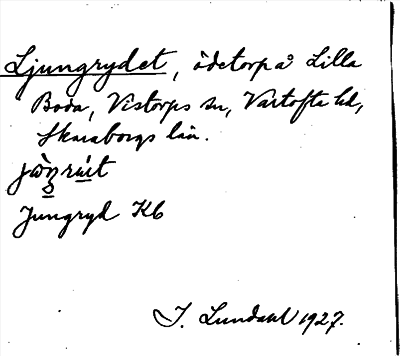 Ljungrydet, ödetorp å Lilla
Boda, Vistorps sn, Vartofta hd,
Skaraborgs län.
Jungryd Kb
J. Lundahl 1927.